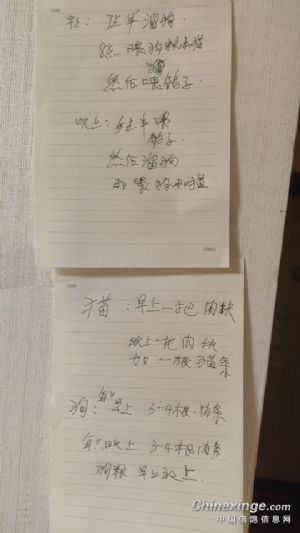 早: 7点半溜狗.
8点 喂狗粮和猫
然后喂鸽子.
晚上: 5点半喂
鸽子.
然后溜狗
和喂狗和猫
猫: 早上一把肉块
晚上一把肉块
加一根猫条
狗: 每只早上 3-4根 肉条
每只晚上 3-4根肉条
狗粮 早上
Chinaxinge.com
中国信鸽信息网